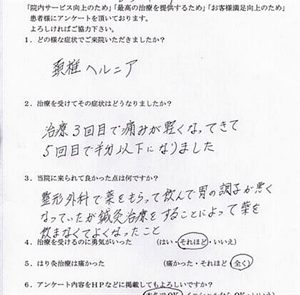 「院内サービス向上のため」「最高の治療を提供するため」「お客様満足向上のため」
患者様にアンケートを頂いております。
よろしければご協力下さい。
1．どの様な症状でご来院いただきましたか？
頚椎ヘルニア
2．治療を受けてその症状はどうなりましたか？
治療3回目で痛みが軽くなってきて
5回目で半分以下になりました
3．当院に来られて良かった点は何ですか？
整形外科で薬をもらって飲んで胃の調子が悪く
なっていたが鍼灸治療をすることによって薬を
飲まなくてよくなったこと
4．治療を受けるのに勇気がいった　（はい・それほど・いいえ）
5．はり灸治療は痛かった　（痛かった・それほど・全く）
6．アンケート内容をHPなどに掲載してもよろしいですか？